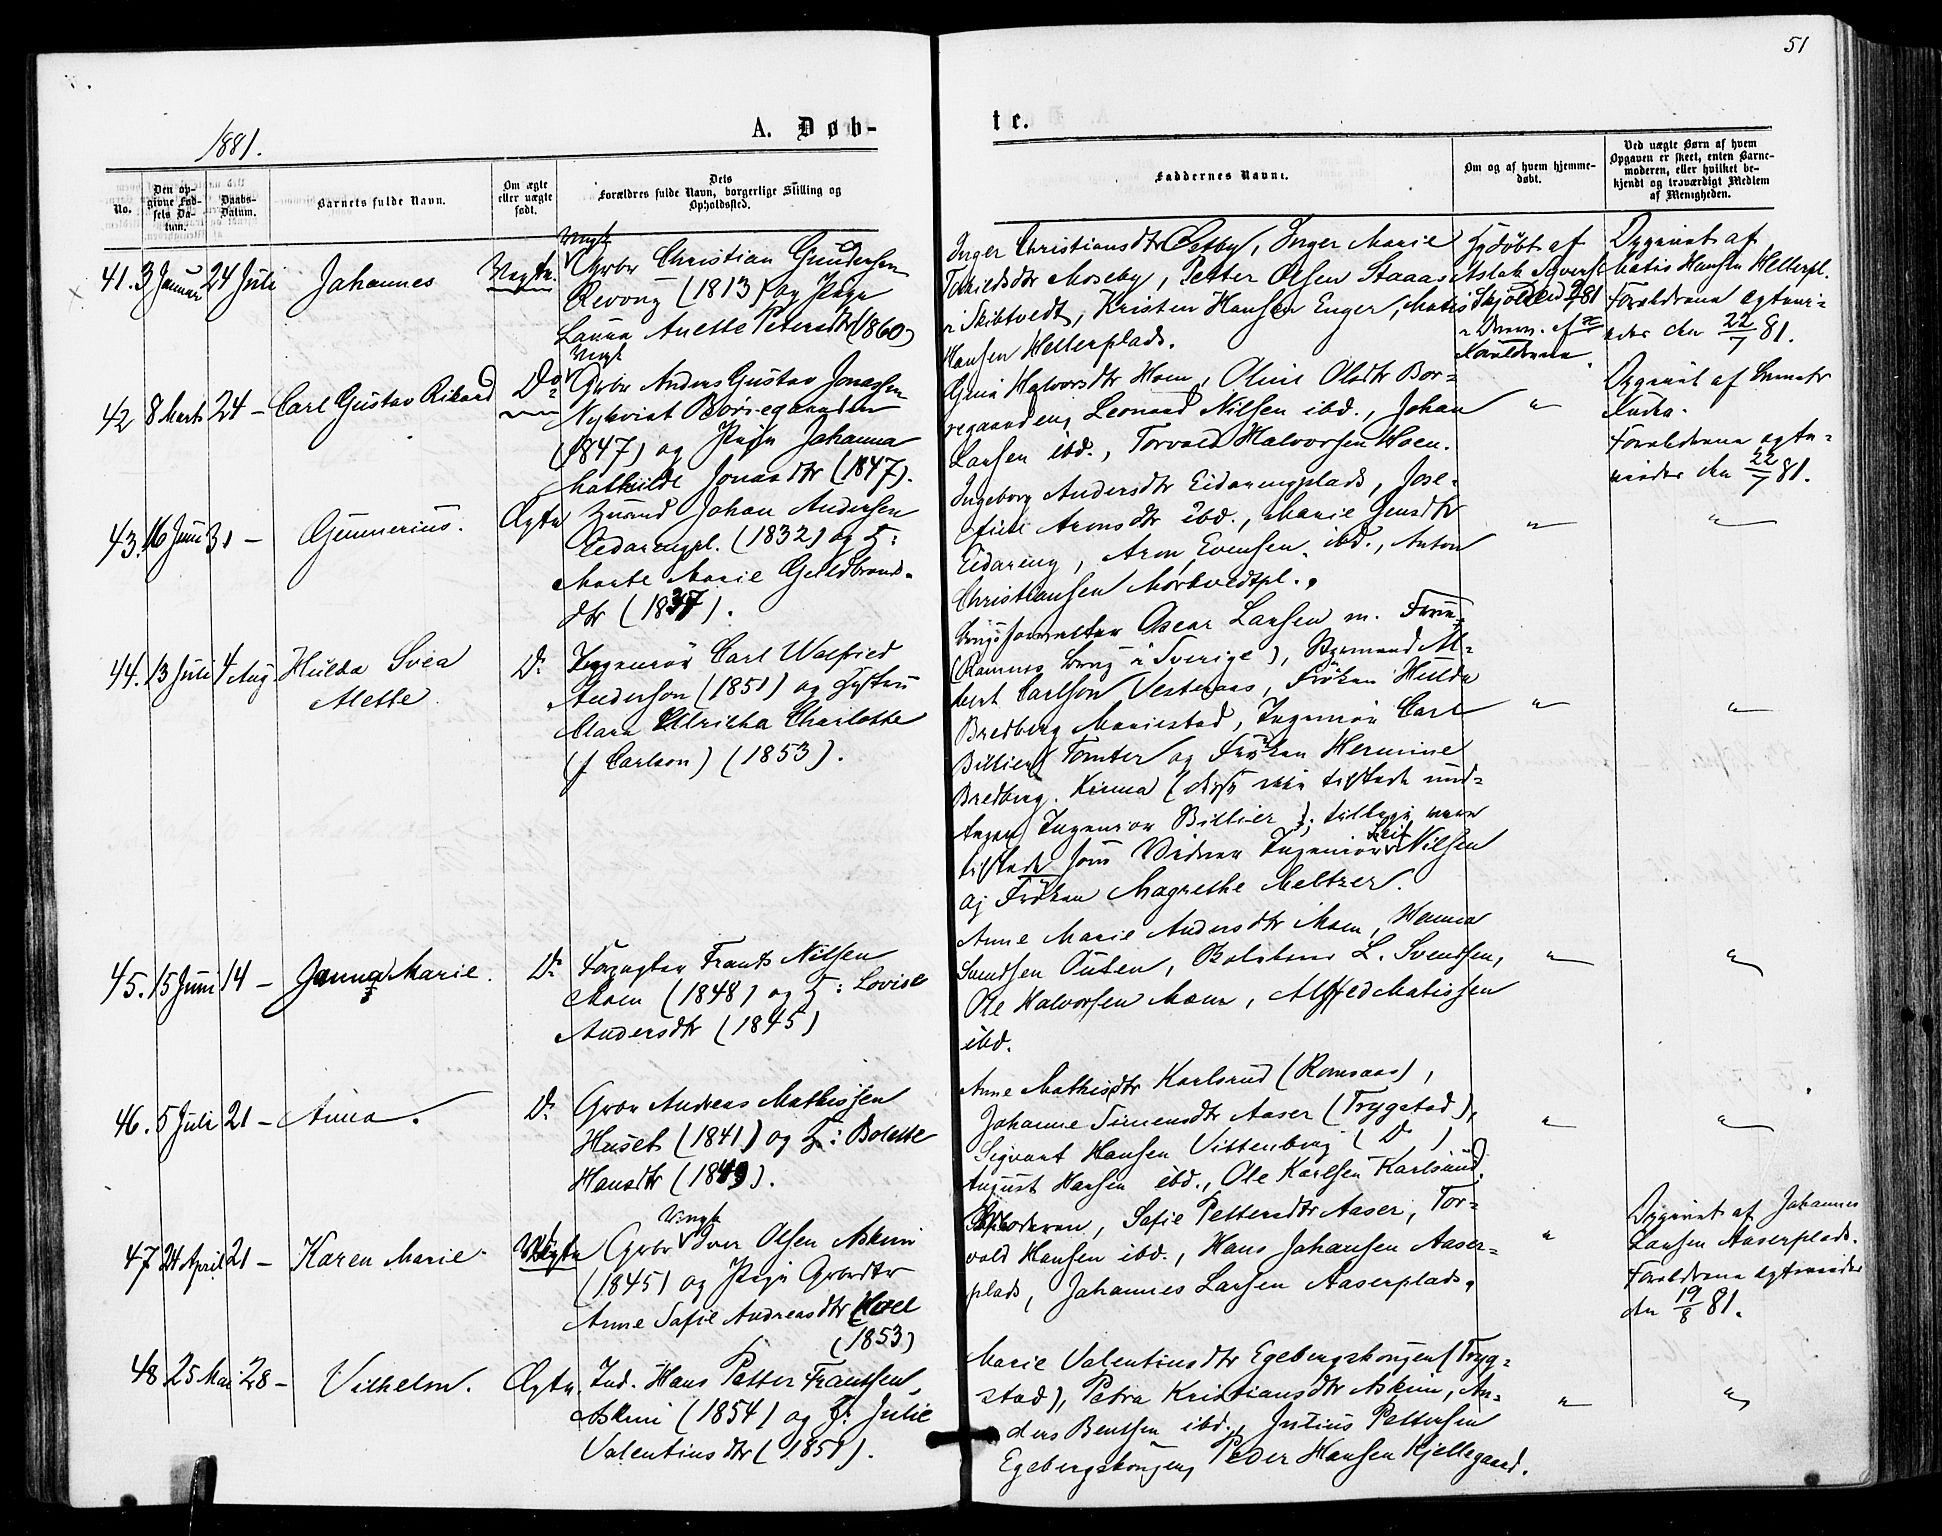 51
1881.
A. Døb-
te.
No.
Den op-
givne Fød-
sels Da-
tum.
Daabs-
Datum.
Barnets fulde Navn.
Om ægte
eller uægte
født.
Dets
Forældres fulde Navn, borgerlige Stilling og
Opholdssted.
Faddernes Navne.
Om og af hvem hjemme-
døbt.
Ved uægte Børn af hvem
Opgaven er skeet, enten Barne-
moderen, eller hvilket be-
kjendt og troværdigt Medlem
af Menigheden.
41. 3 Januar 24 Juli Johannes Uægte.
Ungk
Grbr Christian Gundersen
Revoug (1813) og Pige
Laura Anette Petersdtr (1860)
Inger Christiansdtr Østby, Inger Marie
Moseby, Petter Olsen Staaas
i Skibtvedt, Kristen Hansen Enger, Matis
Hansen Hellerplads.
Hjdøbt af
Aslak Syvers
Forældrene
Opgivet af
Matis Hansen Hellerpl.
Forældrene egtevi-
edes den 22/7 81.
42 8 Marts 24 – Carl Gustav Rikard Do
Ungk
Grbr Anders Gustav Jonassen
Nykvist Børsegaarden
(1847) og Pige Johanna
Mathilde Jonasdtr (1847).
Gina Halvorsdtr Hoen, Oline Olsdtr Bor-
regaardeng, Leonard Nilsen ibd., Johan
Larsen ibd., Torvald Halvorsen Hoen.
"
Opgivet af
Forældrene egte-
viedes den 22/7 81.
43. 16 Juni 31 – Gunnerius. Ægte
Husmd Johan Andersen
Eidarengpl. (1832) og H:
Marte Marie Guldbrands-
dtr (1837).
Ingeborg Andersdtr Eidarengplads, Jose-
fine Aronsdtr ibd., Marie Jensdtr
Eidareng, Aron Evensen ibd., Anton
Christiansen Mörkvedtpl.
"
"
44. 13 Juli 4 Aug Hulda Svea
Alette. Do
Ingeniør Carl Walfried
Anderson (1851) og Hustru
Clara Ulricka Charlotte
(f. Carlson) (1853).
Brugsforvalter Oscar Larsen m. Frue
(Ramnes brug i Sverige), Styrmand Al-
bert Carlson Vesteraas, Frøken Hulda
Bredberg Mariestad, Ingeniør Carl
Billier Tomter og Frøken Hermine
Bredberg. Kinna (disse ikke tilstede und-
tagen Ingeniør Billier); tillige vare
tilstede som Vidner Ingeniør Leif Nilsen
og Frøken Magrethe Meltzer.
"
"
45. 15 Juni 14 – Janna Marie. Do
Forpagter Frants Nilsen
Moen (1848) og H: Lovise
Andersdtr (1845)
Anne Marie Andersdtr Moen, Hanna
Svendsen Outen, L. Svendsen,
Ole Halvorsen Moen, Alfred Matissen
ibd.
"
"
46. 5 Juli 21 – Anna. Do
Grbr Andreas Mathissen
Huseb (1841) og H: Bolette
Hansdtr (1849).
Anne Mathisdtr Karlsrud (Romsaas),
Johanne Simensdtr Aaser (Trygstad),
Sigvart Hansen Vittenberg (Do)
August Hansen ibd., Ole Karlsen Karlsrud.
"
"
47 24 April 21 – Karen Marie. Uægte
Ungk
Grbr Iver Olsen Askim
(1845) og Pige Grbrdtr
Anne Sofie Andreasdtr Hoel
(1853)
Sofie Pettersdtr Aaser, Tor-
vald Hansen ibd., Hans Johansen Aaser-
plads, Johannes Larsen Aaserplads.
"
Opgivet af Johannes
Larsen Aaserplads.
Forældrene egteviedes
den 19/8 81.
48 25 Mai 28 – Vilhelm. Ægte.
Ind. Hans Petter Frantsen
Askim (1854) og H: Julie
Valentinsdtr (1851).
Marie Valentinsdtr Egebergskongen (Tryg-
stad), Petra Kristiansdtr Askim, An-
ders Bentsen ibd., Julius Pettersen
Egebergskongen, Peder Hansen Kjellegaard.
"
"